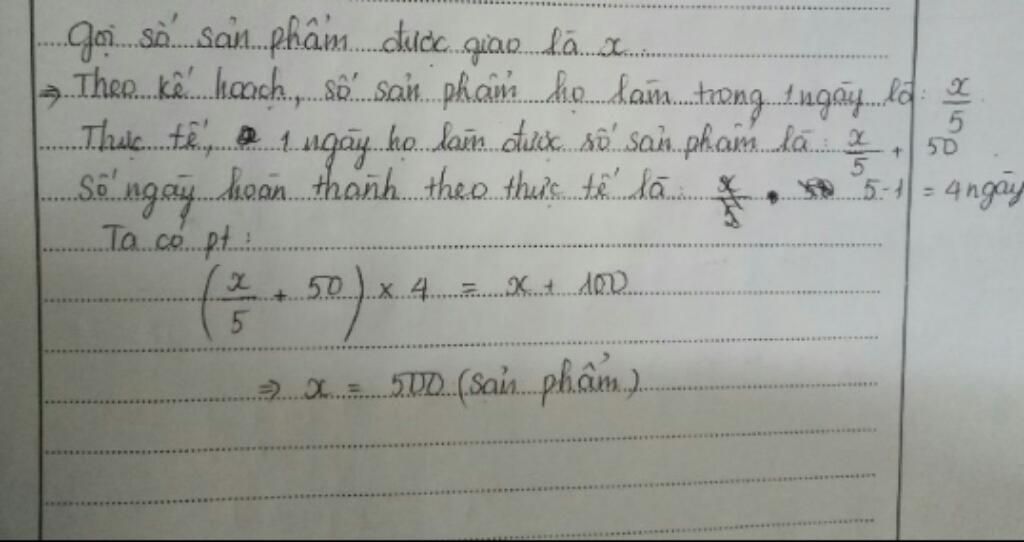 Gọi số sản phẩm được giao là x.
⇒ Theo kế hoạch, số sản phẩm họ làm trong 1 ngày là: x/5
Thực tế, 1 ngày họ làm được số sản phẩm là: x/5 + 50
Số ngày hoàn thành theo thực tế là: 5-1 = 4 ngày
Ta có pt:
(x/5 + 50) × 4 = x + 100
⇒ x = 500 (sản phẩm)